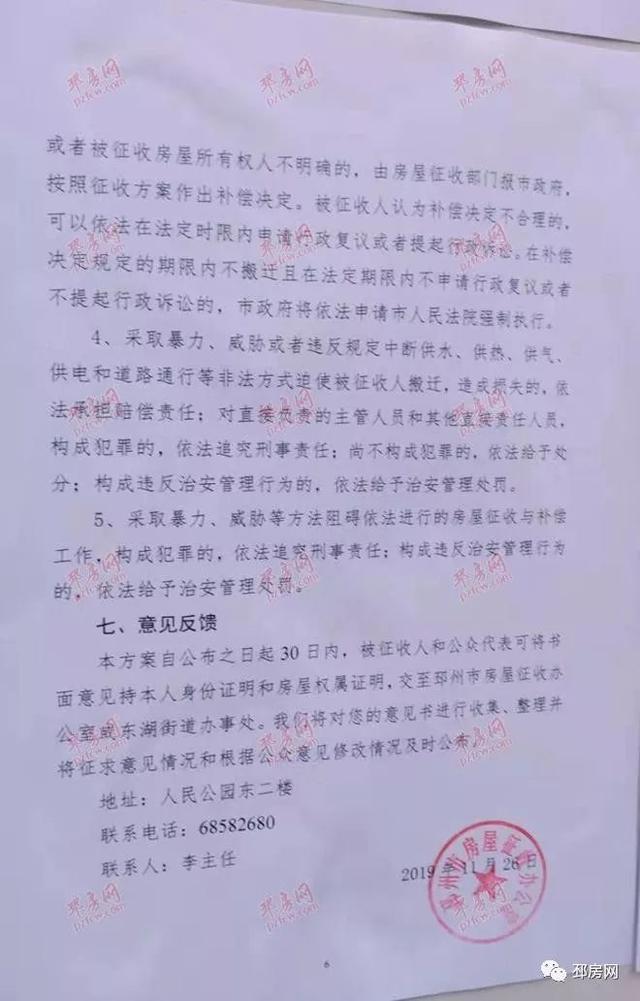 或者被征收房屋所有权人不明确的，由房屋征收部门报市政府，
按照征收方案作出补偿决定。被征收人认为补偿决定不合理的，
可以依法在法定时限内申请行政复议或者提起行政诉讼。在补偿
决定规定的期限内不搬迁且在法定期限内不申请行政复议或者
不提起行政诉讼的，市政府将依法申请市人民法院强制执行。
4、采取暴力、威胁或者违反规定中断供水、供热、供气、
供电和道路通行等非法方式迫使被征收人搬迁，造成损失的，依
法承担赔偿责任；对直接负责的主管人员和其他直接责任人员，
构成犯罪的，依法追究刑事责任；尚不构成犯罪的，依法给予处
分；构成违反治安管理行为的，依法给予治安管理处罚。
5、采取暴力、威胁等方法阻碍依法进行的房屋征收与补偿
工作，构成犯罪的，依法追究刑事责任；构成违反治安管理行为
的，依法给予治安管理处罚。
七、意见反馈
本方案自公布之日起30日内，被征收人和公众代表可将书
面意见持本人身份证明和房屋权属证明，交至邳州市房屋征收办
公室或东湖街道办事处。我们将对您的意见书进行收集、整理并
将征求意见情况和根据公众意见修改情况及时公布。
地址：人民公园东二楼
联系电话：68582680
联系人：李主任
2019年11月26日
邳州市房屋征收办公室
6
邳房网
pzfcw.com
邳房网